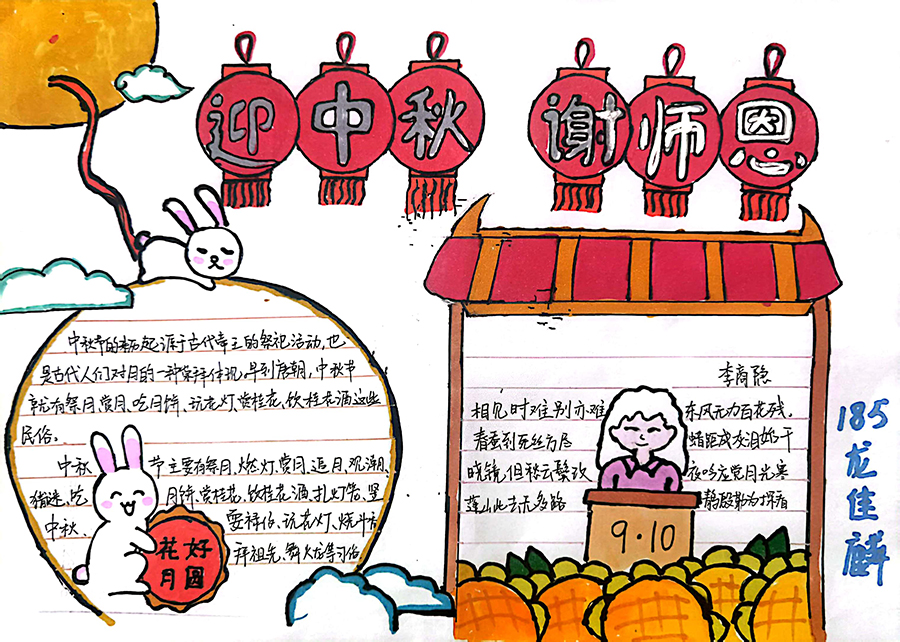 迎中秋 谢师恩
中秋节的来起源于古代帝王的祭祀活动,也
是古代人们对月的一种崇拜体现,早到唐朝,中秋节
就有祭月、赏月、吃月饼、玩花灯、赏桂花、饮桂花酒这些
民俗。
中秋节主要有祭月、燃灯、赏月、追月、观潮、
猜谜、吃月饼、赏桂花、饮桂花酒、扎灯笼、竖
中秋、玩花灯、烧斗香
拜祖先、舞火龙等习俗
花好
月圆
李商隐
相见时难别亦难 东风无力百花残。
春蚕到死丝方尽
晓镜但愁云鬓改 夜吟应觉月光寒
蓬山此去无多路
9·10
185
龙佳麟